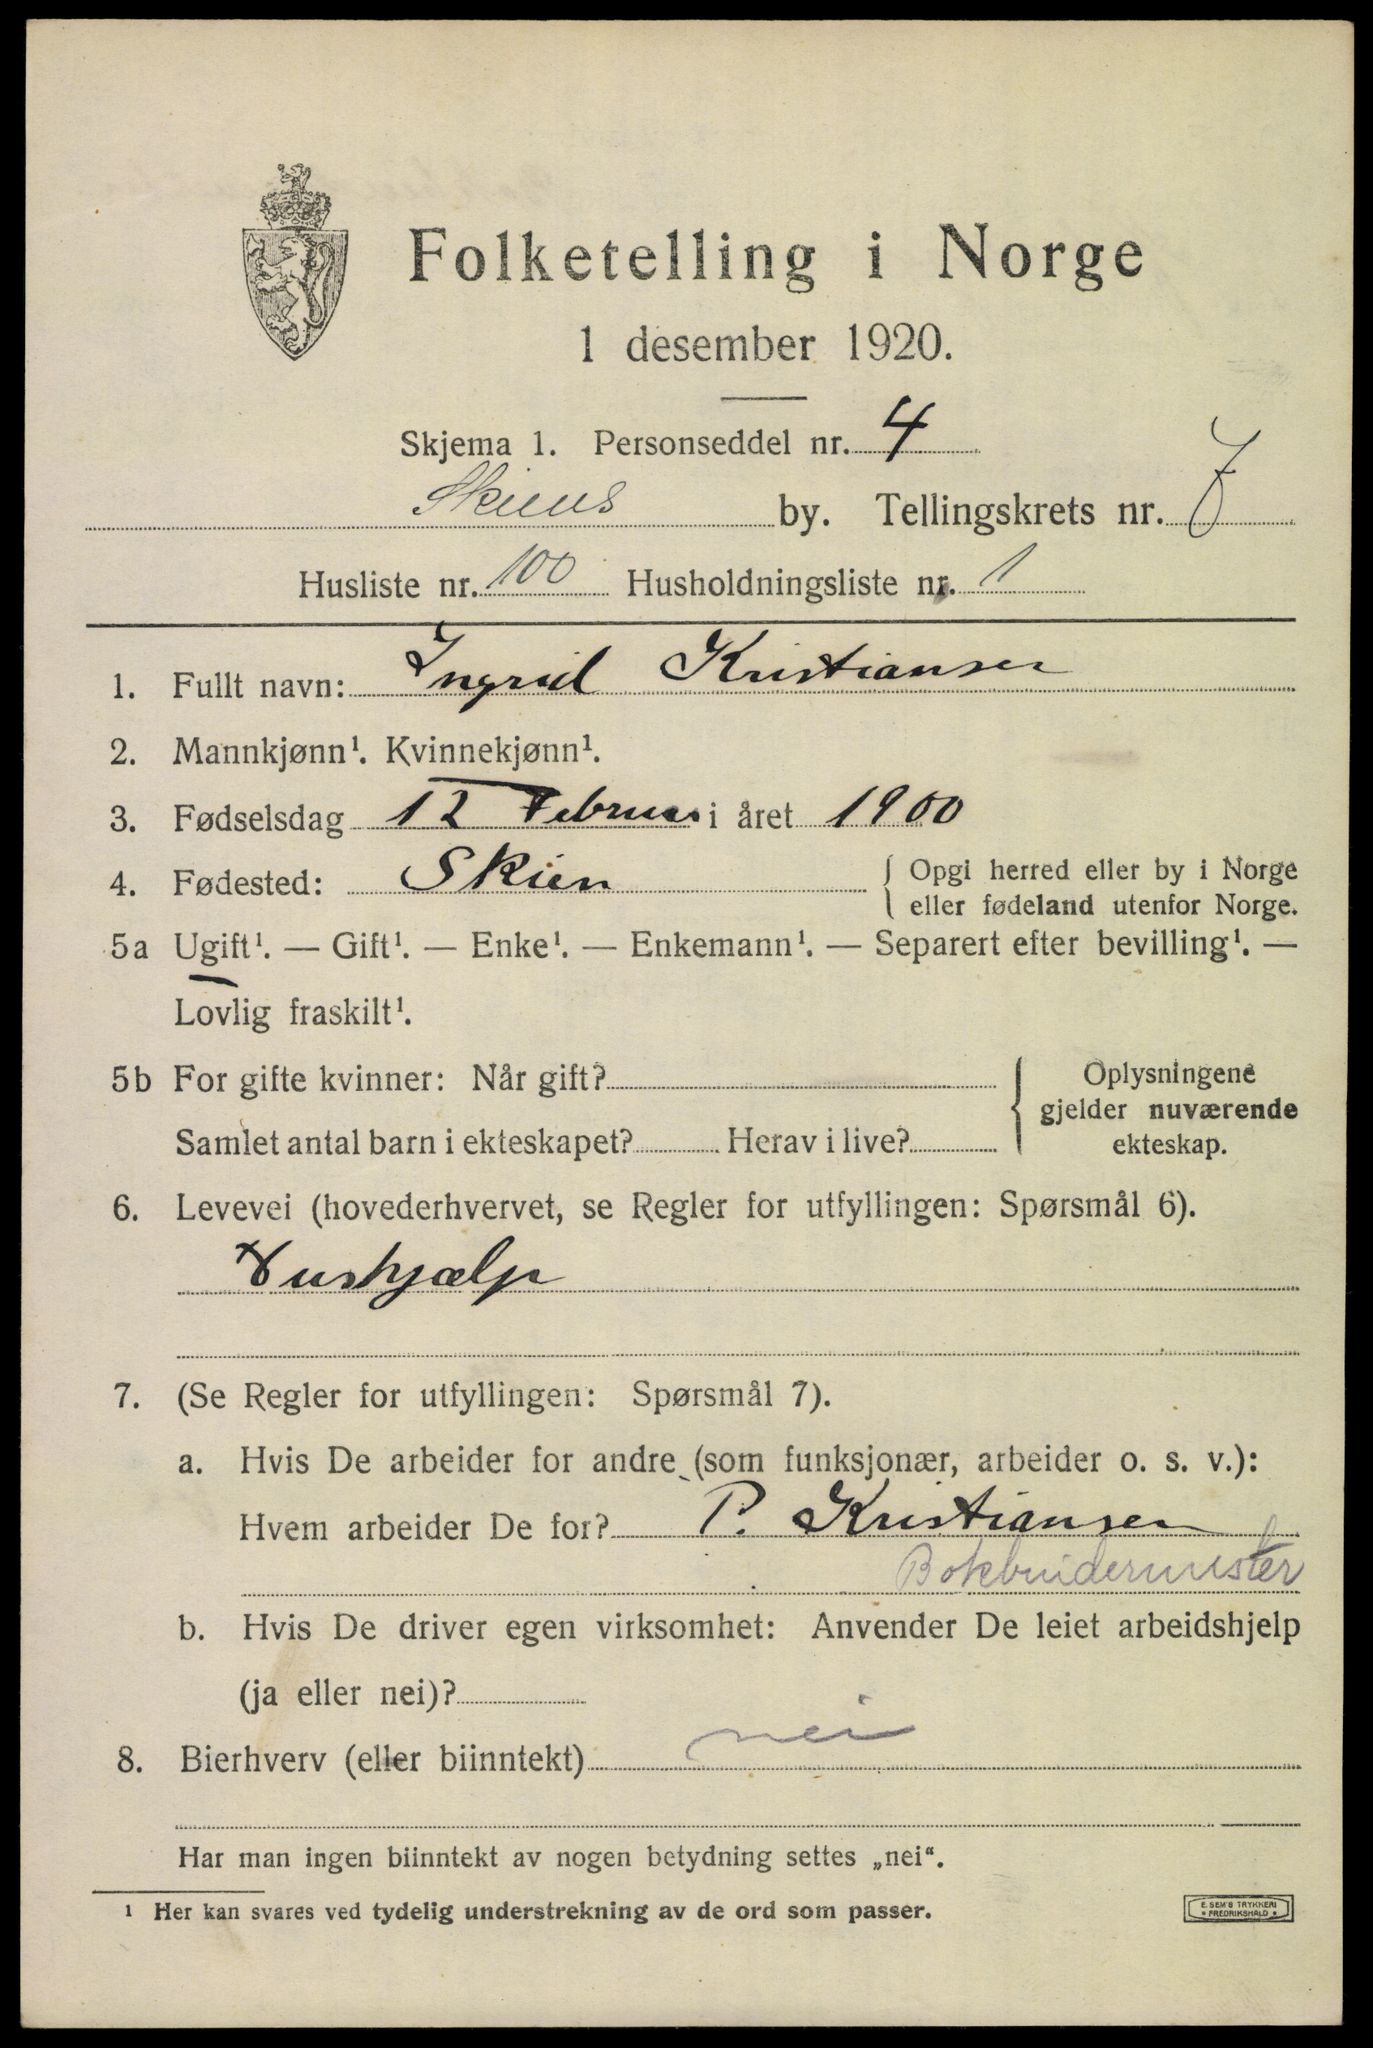 Folketelling i Norge
1 desember 1920.
Skjema 1. Personseddel nr. 4
Skiens by. Tellingskrets nr. 7
Husliste nr. 100 Husholdningsliste nr. 1
1. Fullt navn: Ingrid Kristiansen
2. Mannkjønn¹. Kvinnekjønn¹.
3. Fødselsdag 12 Februar i året 1900
4. Fødested: Skien { Opgi herred eller by i Norge
eller fødeland utenfor Norge.
5a Ugift¹. — Gift¹. — Enke¹. — Enkemann¹. — Separert efter bevilling¹. —
Lovlig fraskilt¹.
5b For gifte kvinner: Når gift? { Oplysningene
gjelder nuværende
Samlet antal barn i ekteskapet? Herav i live? ekteskap.
6. Levevei (hovederhvervet, se Regler for utfyllingen: Spørsmål 6).
Hushjælp
7. (Se Regler for utfyllingen: Spørsmål 7).
a. Hvis De arbeider for andre (som funksjonær, arbeider o. s. v.):
Hvem arbeider De for? P. Kristiansen
Bokbindermester
b. Hvis De driver egen virksomhet: Anvender De leiet arbeidshjelp
(ja eller nei)?
8. Bierhverv (eller biinntekt) nei
Har man ingen biinntekt av nogen betydning settes „nei“.
¹ Her kan svares ved tydelig understrekning av de ord som passer.
E. SEM'S TRYKKERI
* FREDRIKSHALD *